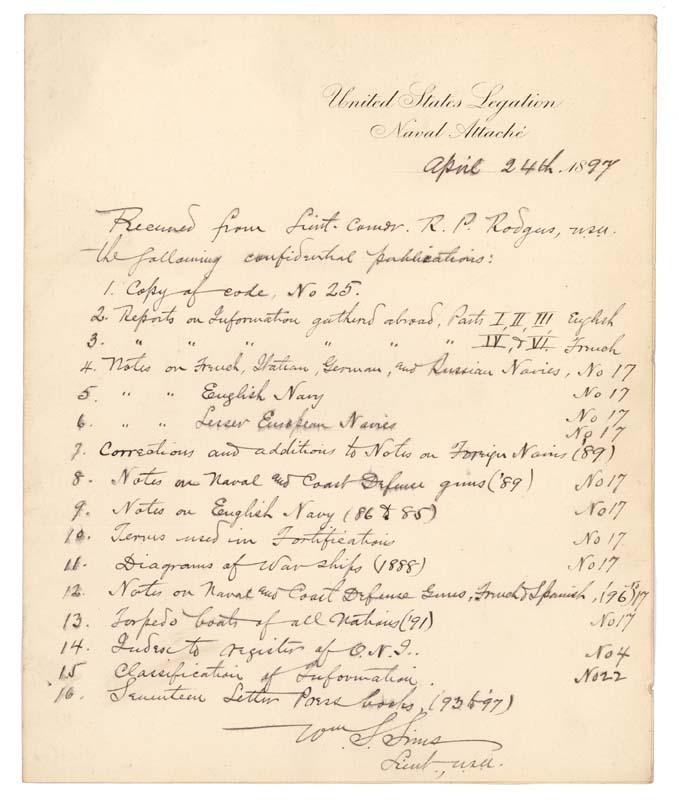 United States Legation
Naval Attaché
April 24th. 1897
Received from Lieut-Comdr. R. P. Rodgers, U.S.N.
the following confidential publications:
1. Copy of code, No 25.
2. Reports on Information gathered abroad, Parts I, II, III English
3. " " " " " " IV, & VI. French
4. Notes on French, Italian, German, and Russian Navies, No 17
5. " " English Navy No 17
6. " " Lesser European Navies No 17
No 17
7. Corrections and additions to Notes on Foreign Navies (89)
8. Notes on Naval and Coast Defense guns ('89) No 17
9. Notes on English Navy (86 & 85) No 17
10. Terms used in Fortifications No 17
11. Diagrams of War ships (1888) No 17
12. Notes on Naval and Coast Defense Guns, French & Spanish, ('96) No 17
13. Torpedo boats of all Nations ('91) No 17
14. Index to register of O.N.I. No 4
15 Classification of Information. No 22
16. Seventeen Letter Press books, (93 to '97)
Wm S. Sims
Lieut., U.S.N.